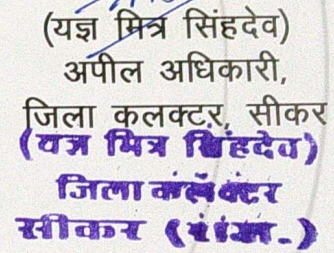 (यज्ञ मित्र सिंहदेव)
अपील अधिकारी,
जिला कलक्टर, सीकर
(यज्ञ मित्र सिंहदेव)
जिला कलेक्टर
सीकर (राज.)